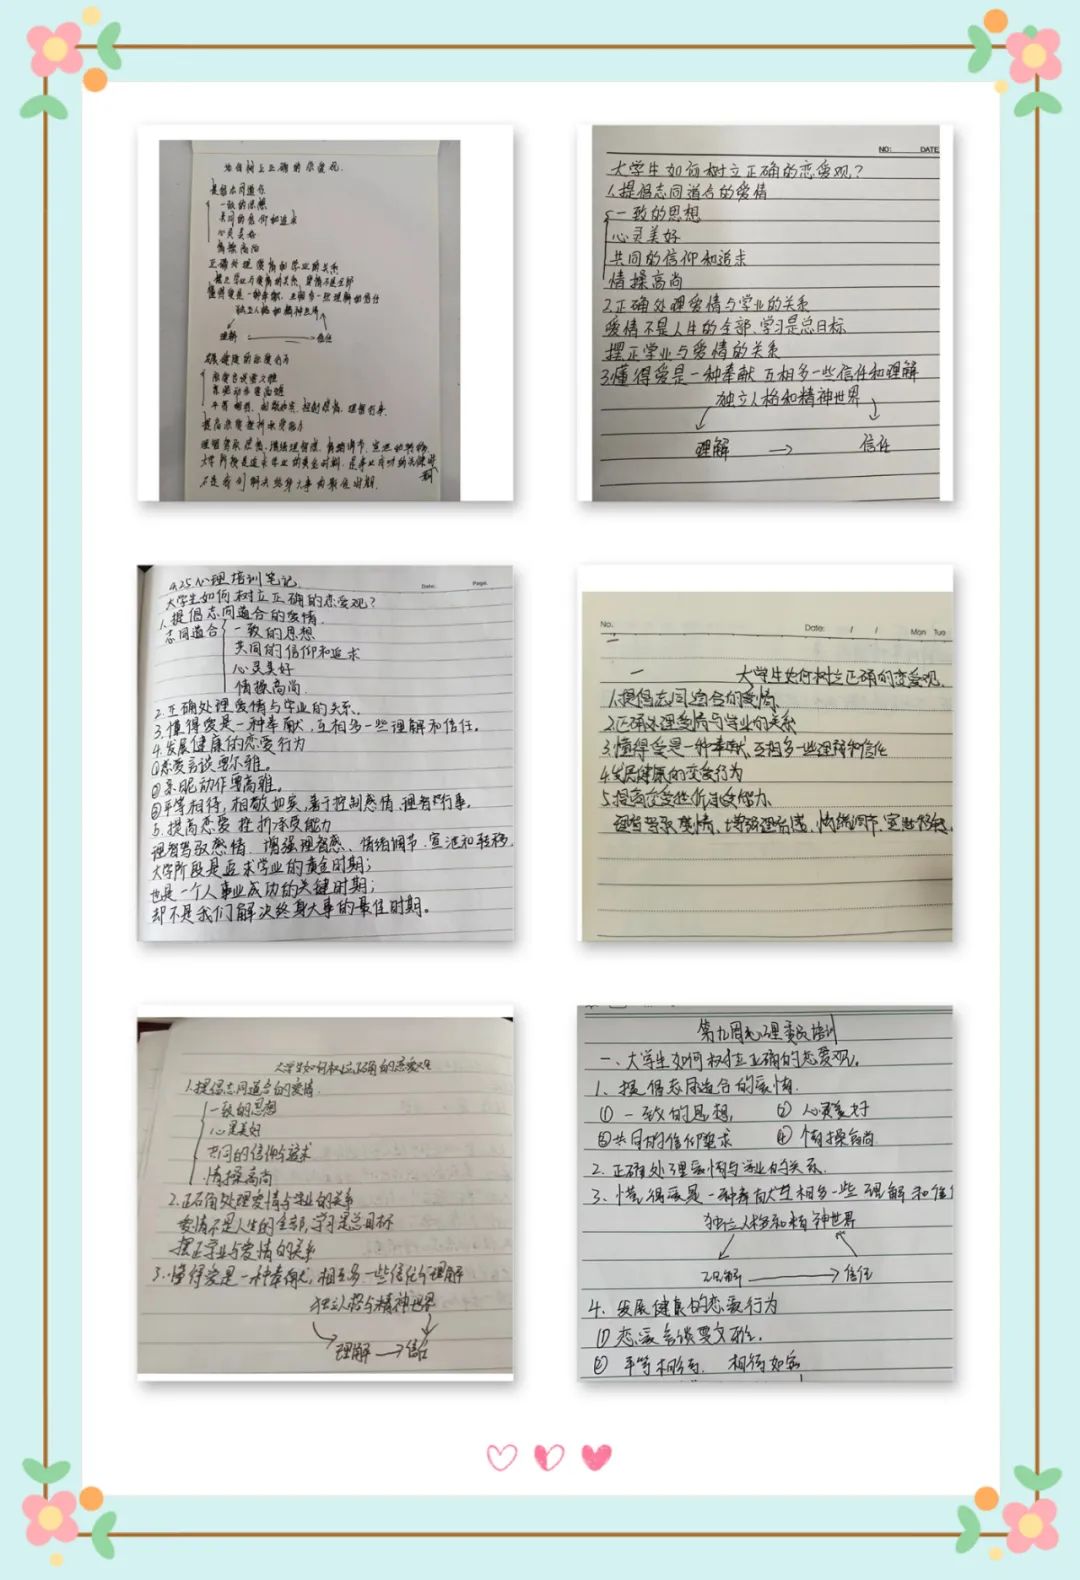 如何树立正确的恋爱观
提倡志同道合
一致的思想
共同的信仰和追求
心灵美好
情操高尚
正确处理爱情和学业的关系
摆正学业与爱情的关系，爱情不是全部
懂得爱是一种奉献，互相多一些理解和信任
独立人格和精神世界
理解 信任
发展健康的恋爱行为
恋爱言谈要文雅
亲昵动作要高雅
平等相待，相敬如宾，控制感情，理智行事
提高恋爱挫折承受能力
理智驾驭感情，增强理智感，情绪调节，宣泄和转移
大学阶段是追求学业的黄金时期，是事业成功的关键时期
不是我们解决终身大事的最佳时期.
NO: DATE
大学生如何树立正确的恋爱观?
1.提倡志同道合的爱情
一致的思想
心灵美好
共同的信仰和追求
情操高尚
2.正确处理爱情与学业的关系
爱情不是人生的全部、学习是总目标
摆正学业与爱情的关系
3.懂得爱是一种奉献 互相多一些信任和理解
独立人格和精神世界
理解 → 信任
Date: Page.
4.25.心理培训笔记.
大学生如何树立正确的恋爱观?
1.提倡志同道合的爱情.
志同道合 一致的思想
共同的信仰和追求
心灵美好
情操高尚.
2.正确处理爱情与学业的关系.
3.懂得爱是一种奉献,互相多一些理解和信任.
4.发展健康的恋爱行为
①恋爱言谈要尔雅。
②亲昵动作要高雅。
③平等相待,相敬如宾,善于控制感情,理智行事.
5.提高恋爱挫折承受能力
理智驾驭感情、增强理智感、情绪调节、宣泄和转移.
大学阶段是追求学业的黄金时期;
也是一个人事业成功的关键时期;
却不是我们解决终身大事的最佳时期。
No. Date: / / Mon Tue
一 大学生如何树立正确的恋爱观.
1.提倡志同道合的爱情
2.正确处理爱情与学业的关系
3.懂得爱是一种奉献,互相多一些理解和信任
4.发展健康的恋爱行为
5.提高恋爱挫折承受能力.
理智驾驭感情、增强理智感、情绪调节、宣泄转移.
大学生如何树立正确的恋爱观
1.提倡志同道合的爱情.
一致的思想
心灵美好
共同的信仰与追求
情操高尚
2.正确处理爱情与学业的关系
爱情不是人生的全部,学习是总目标
摆正学业与爱情的关系
3.懂得爱是一种奉献,相互多一些信任与理解
独立人格与精神世界
理解 → 信任
第九周心理委员培训
一、大学生如何树立正确的恋爱观.
1、提倡志同道合的爱情.
① 一致的思想, ② 心灵美好
③共同的信仰追求 ④ 情操高尚
2.正确处理爱情与学业的关系.
3、懂得爱是一种奉献互相多一些理解和信
独立人格和精神世界
理解 → 信任
4、发展健康的恋爱行为
① 恋爱言谈要文雅.
② 平等相待. 相待如宾